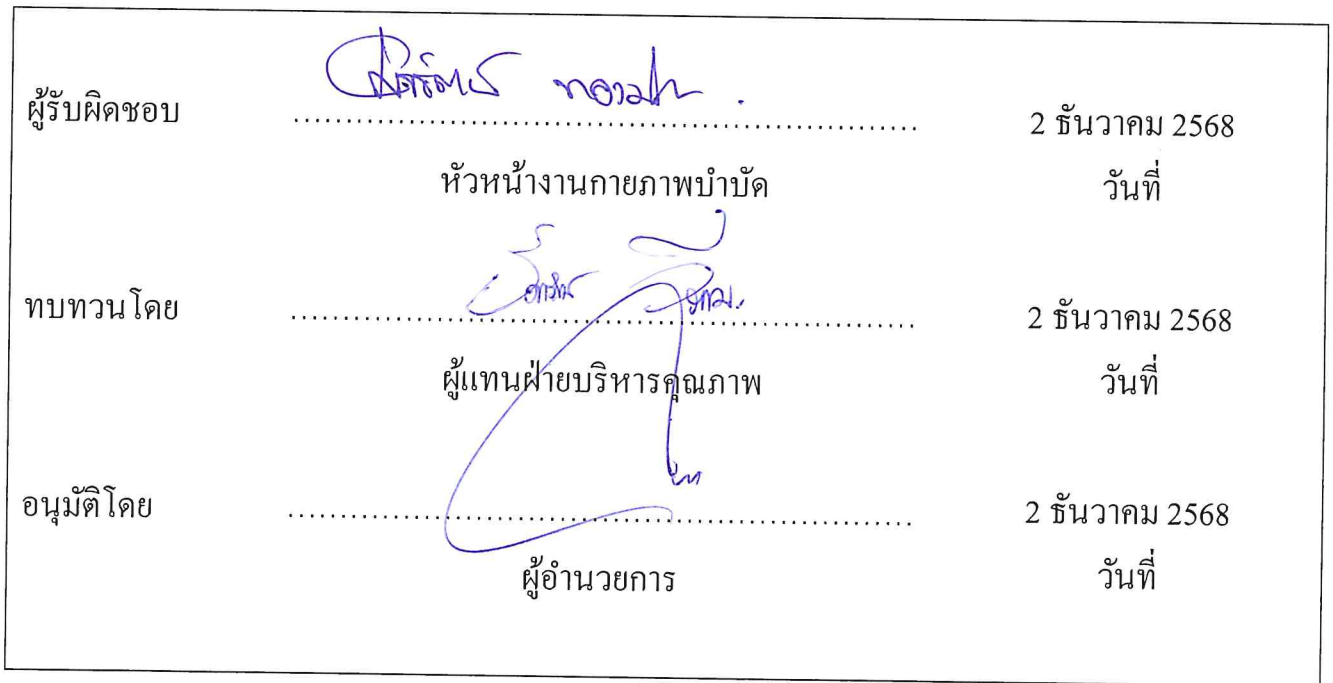 ผู้รับผิดชอบ .................................................... 2 ธันวาคม 2568
หัวหน้างานกายภาพบำบัด วันที่
ทบทวนโดย .................................................... 2 ธันวาคม 2568
ผู้แทนฝ่ายบริหารคุณภาพ วันที่
อนุมัติโดย .................................................... 2 ธันวาคม 2568
ผู้อำนวยการ วันที่